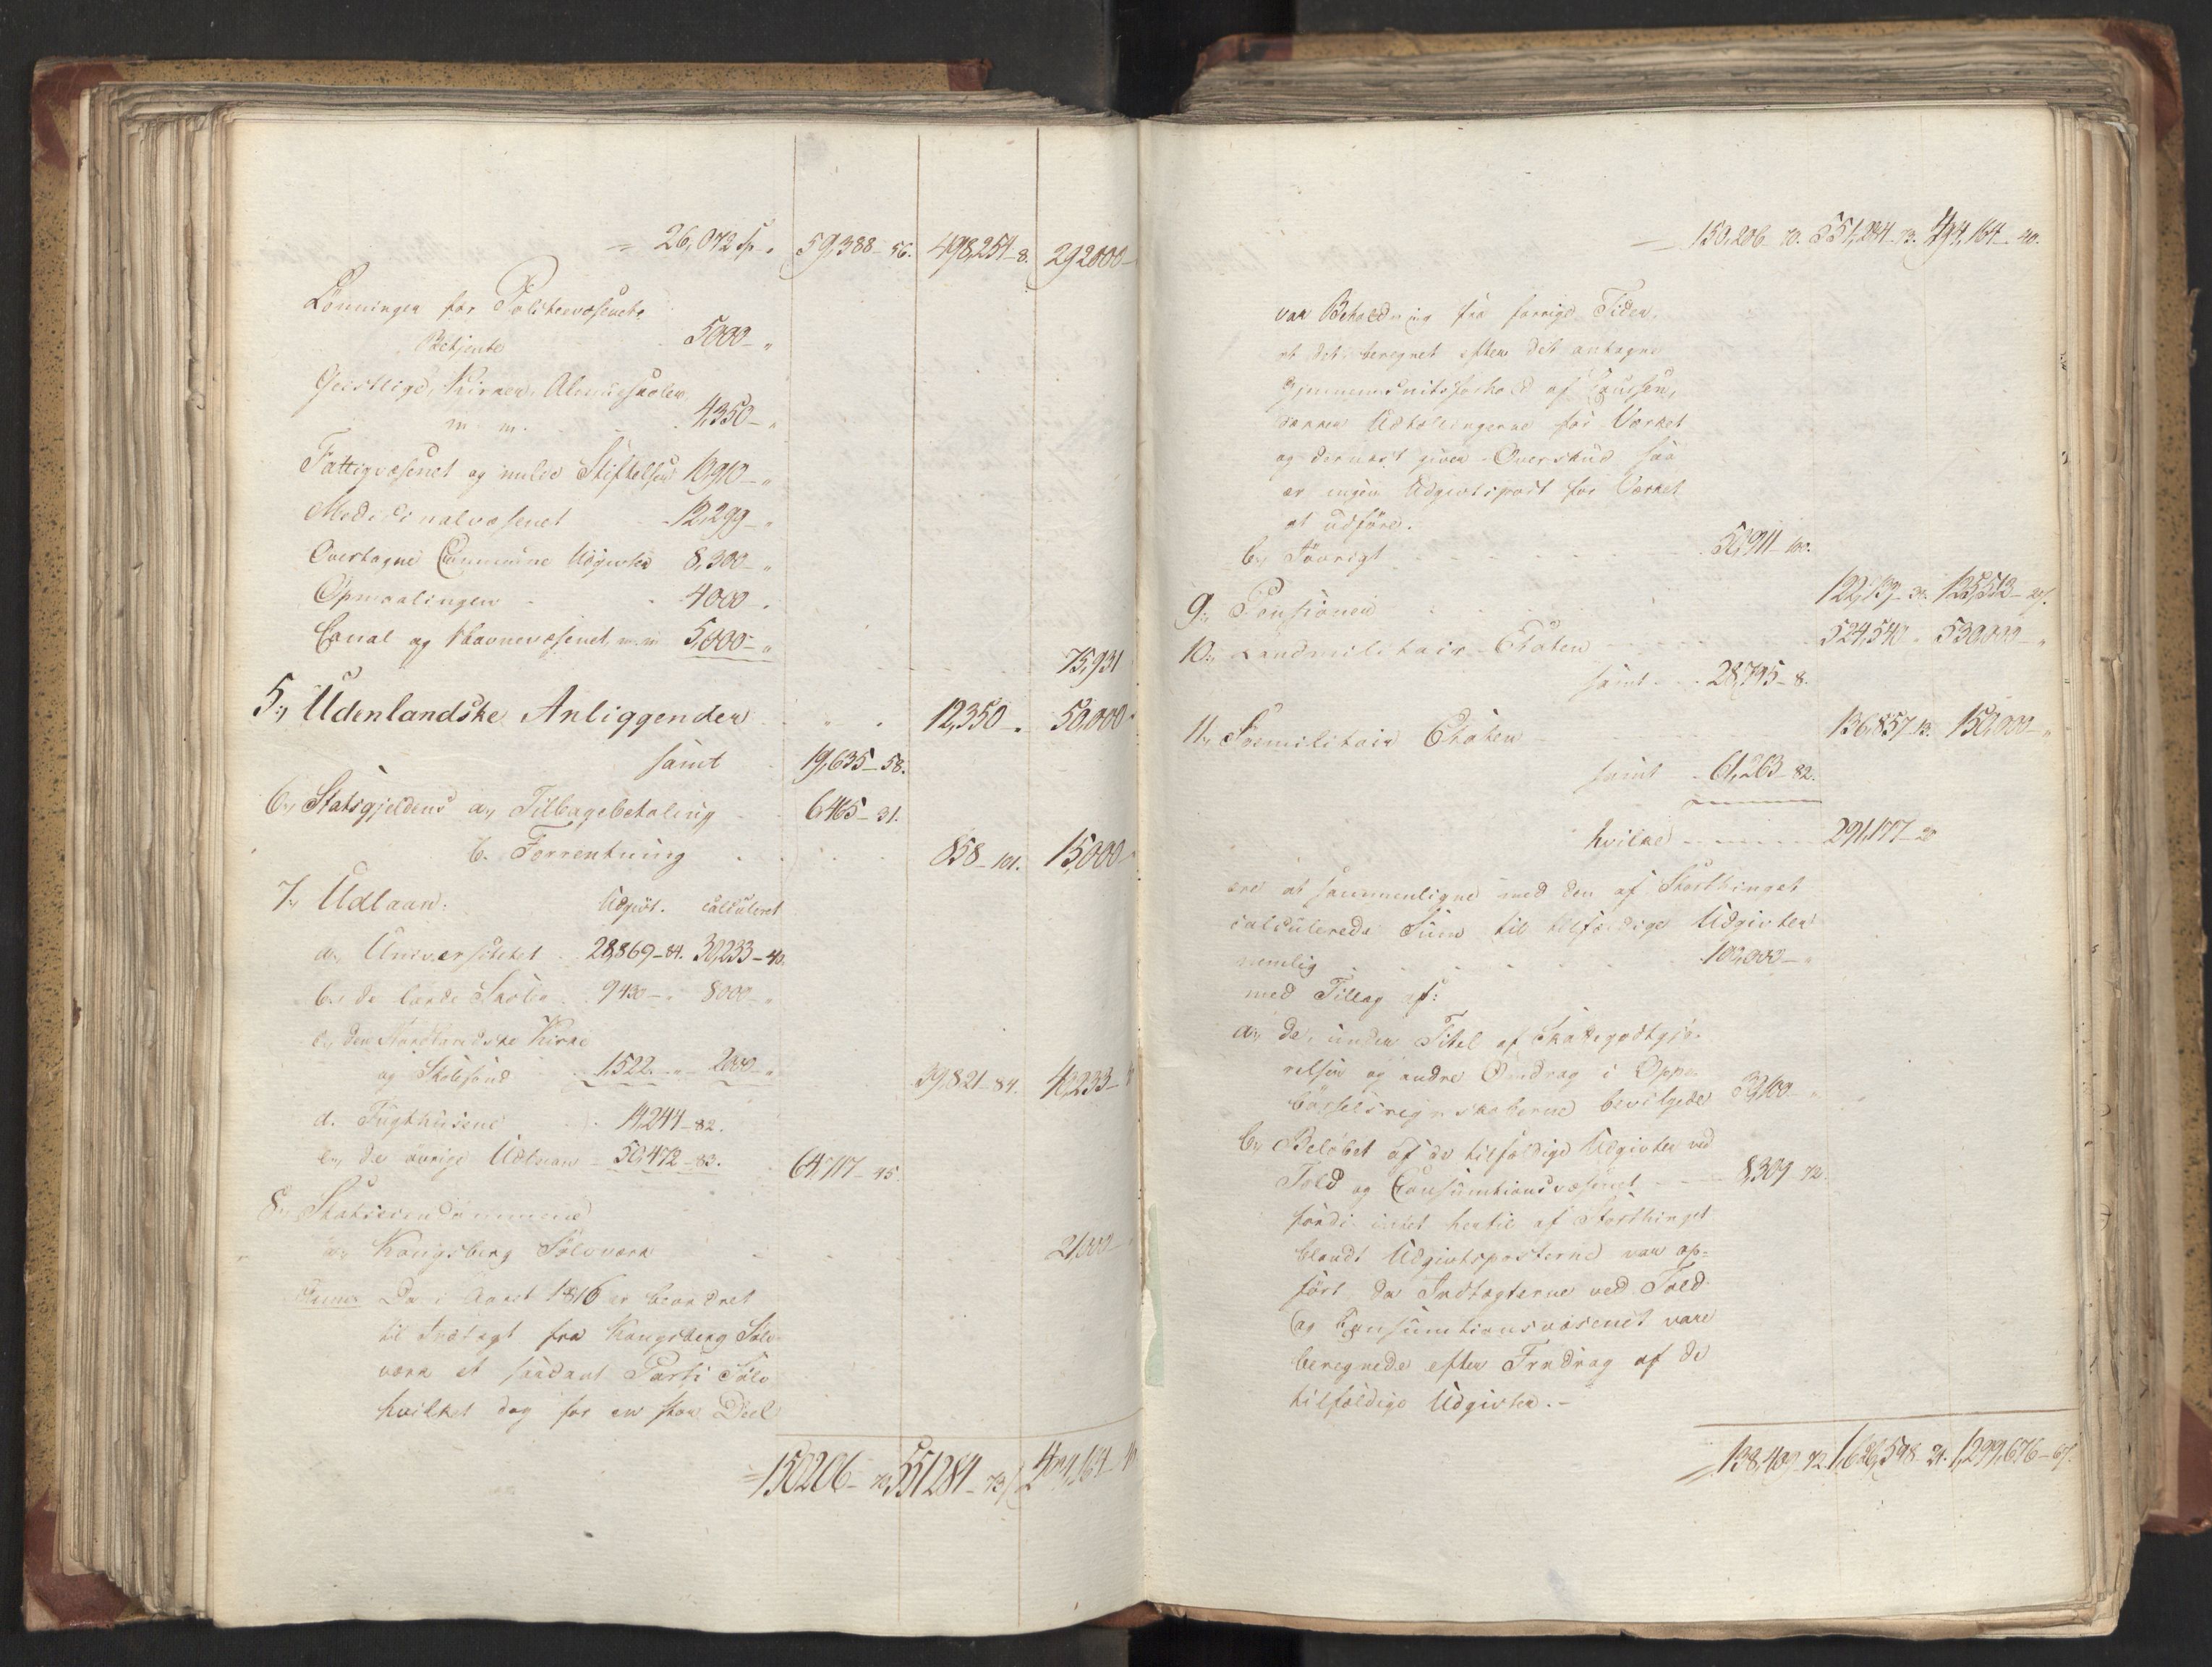 = 26,073 Sp. „ 59,388 - 56. 498,254 - 8. 292000 -
Lönninger for Politievæsenets
Betjente 5000 - „
Geistlige, Kirker, Almueskoler
m. m. 4,350 - „
Fattigvæsenet og milde Stiftelser 10,910 - „
Medicinalvæsenet - 12,299 - „
Overtagne Commune Udgivter 8,300 - „
Opmaalingen - 4000 - „
Canal og Havnevæsenet m. m 5,000 - „
75,931
5., Udenlandske Anliggender „ 12,350 - „ 50,000 „
samt 19,635 - 58.
6., Statsgjeldens a., Tilbagebetaling 6,465 - 31.
b. Forrentning 858 - 101. 15,000 -
7., Udlaan: Udgivt. calculeret
a., Universitetet 28,869 - 84. 30,233 - 40.
b., de lærde Skoler 9430 - „ 8000 - „
c., den Nordlandske Kirke
og Skolefond 1,522. „ 2000 - „
39,821 - 84. 40,233 - 4
d. Tugthusene 14,244 - 82.
e., de övrige Udlaan 50,472 - 83. 64,717 - 45.
8., Statseiendommene
a., Kongsberg Sölvværk 21000 -
Anm: Da i Aaret 1816 er beordret
til Indtægt fra Kongsberg Sölv-
værk et saadant Parti Sölv
hvilket dog for en stor Deel
= 150206 - 70. 551284 - 73. 494,164 - 40
= 150,206 - 70. 551,284 - 73. 494,164 - 40.
var Beholdning fra forrige Tider,
at det beregnet efter det antagne
Gjennemsnitsforhold af Coursen,
dækker Udtællingerne for Værket
og dernæst giver Overskud saa
er ingen Udgivtspost for Værket
at udföre.
b., Iövrigt 50,911 - 100.
9., Pensioner 122,139 - 34. 125,512 - 27.
10., Landmilitair Etaten 524,540 „ 530,000 - „
samt 28,795 - 8.
11., Söemilitair Etaten 136,857 - 13. 150,000 - „
samt - 61,263 - 82.
hvilke 291,177 - 20
ere at sammenligne med den af Storthinget
calculerede Sum til tilfældige Udgivter
nemlig 100,000 - „
med Tillæg af:
a., de, under Titel af Skattegodtgjö-
relser og andre Omdrag i Oppe-
börselsregnskaberne bevilgede 30,100 - „
b., Belöbet af de tilfældige Udgivter ved
Told og Consumtionsvæsenet 8,309 - 72.
fordi intet hertil af Storthinget
blandt Udgivtsposterne var op-
fört, da Indtægterne ved Told
og Consumtionsvæsenet vare
beregnede efter Fradrag af de
tilfældige Udgivter. -
= 138,409 - 72. 1,626,598 - 24. 1,299,676 - 67.